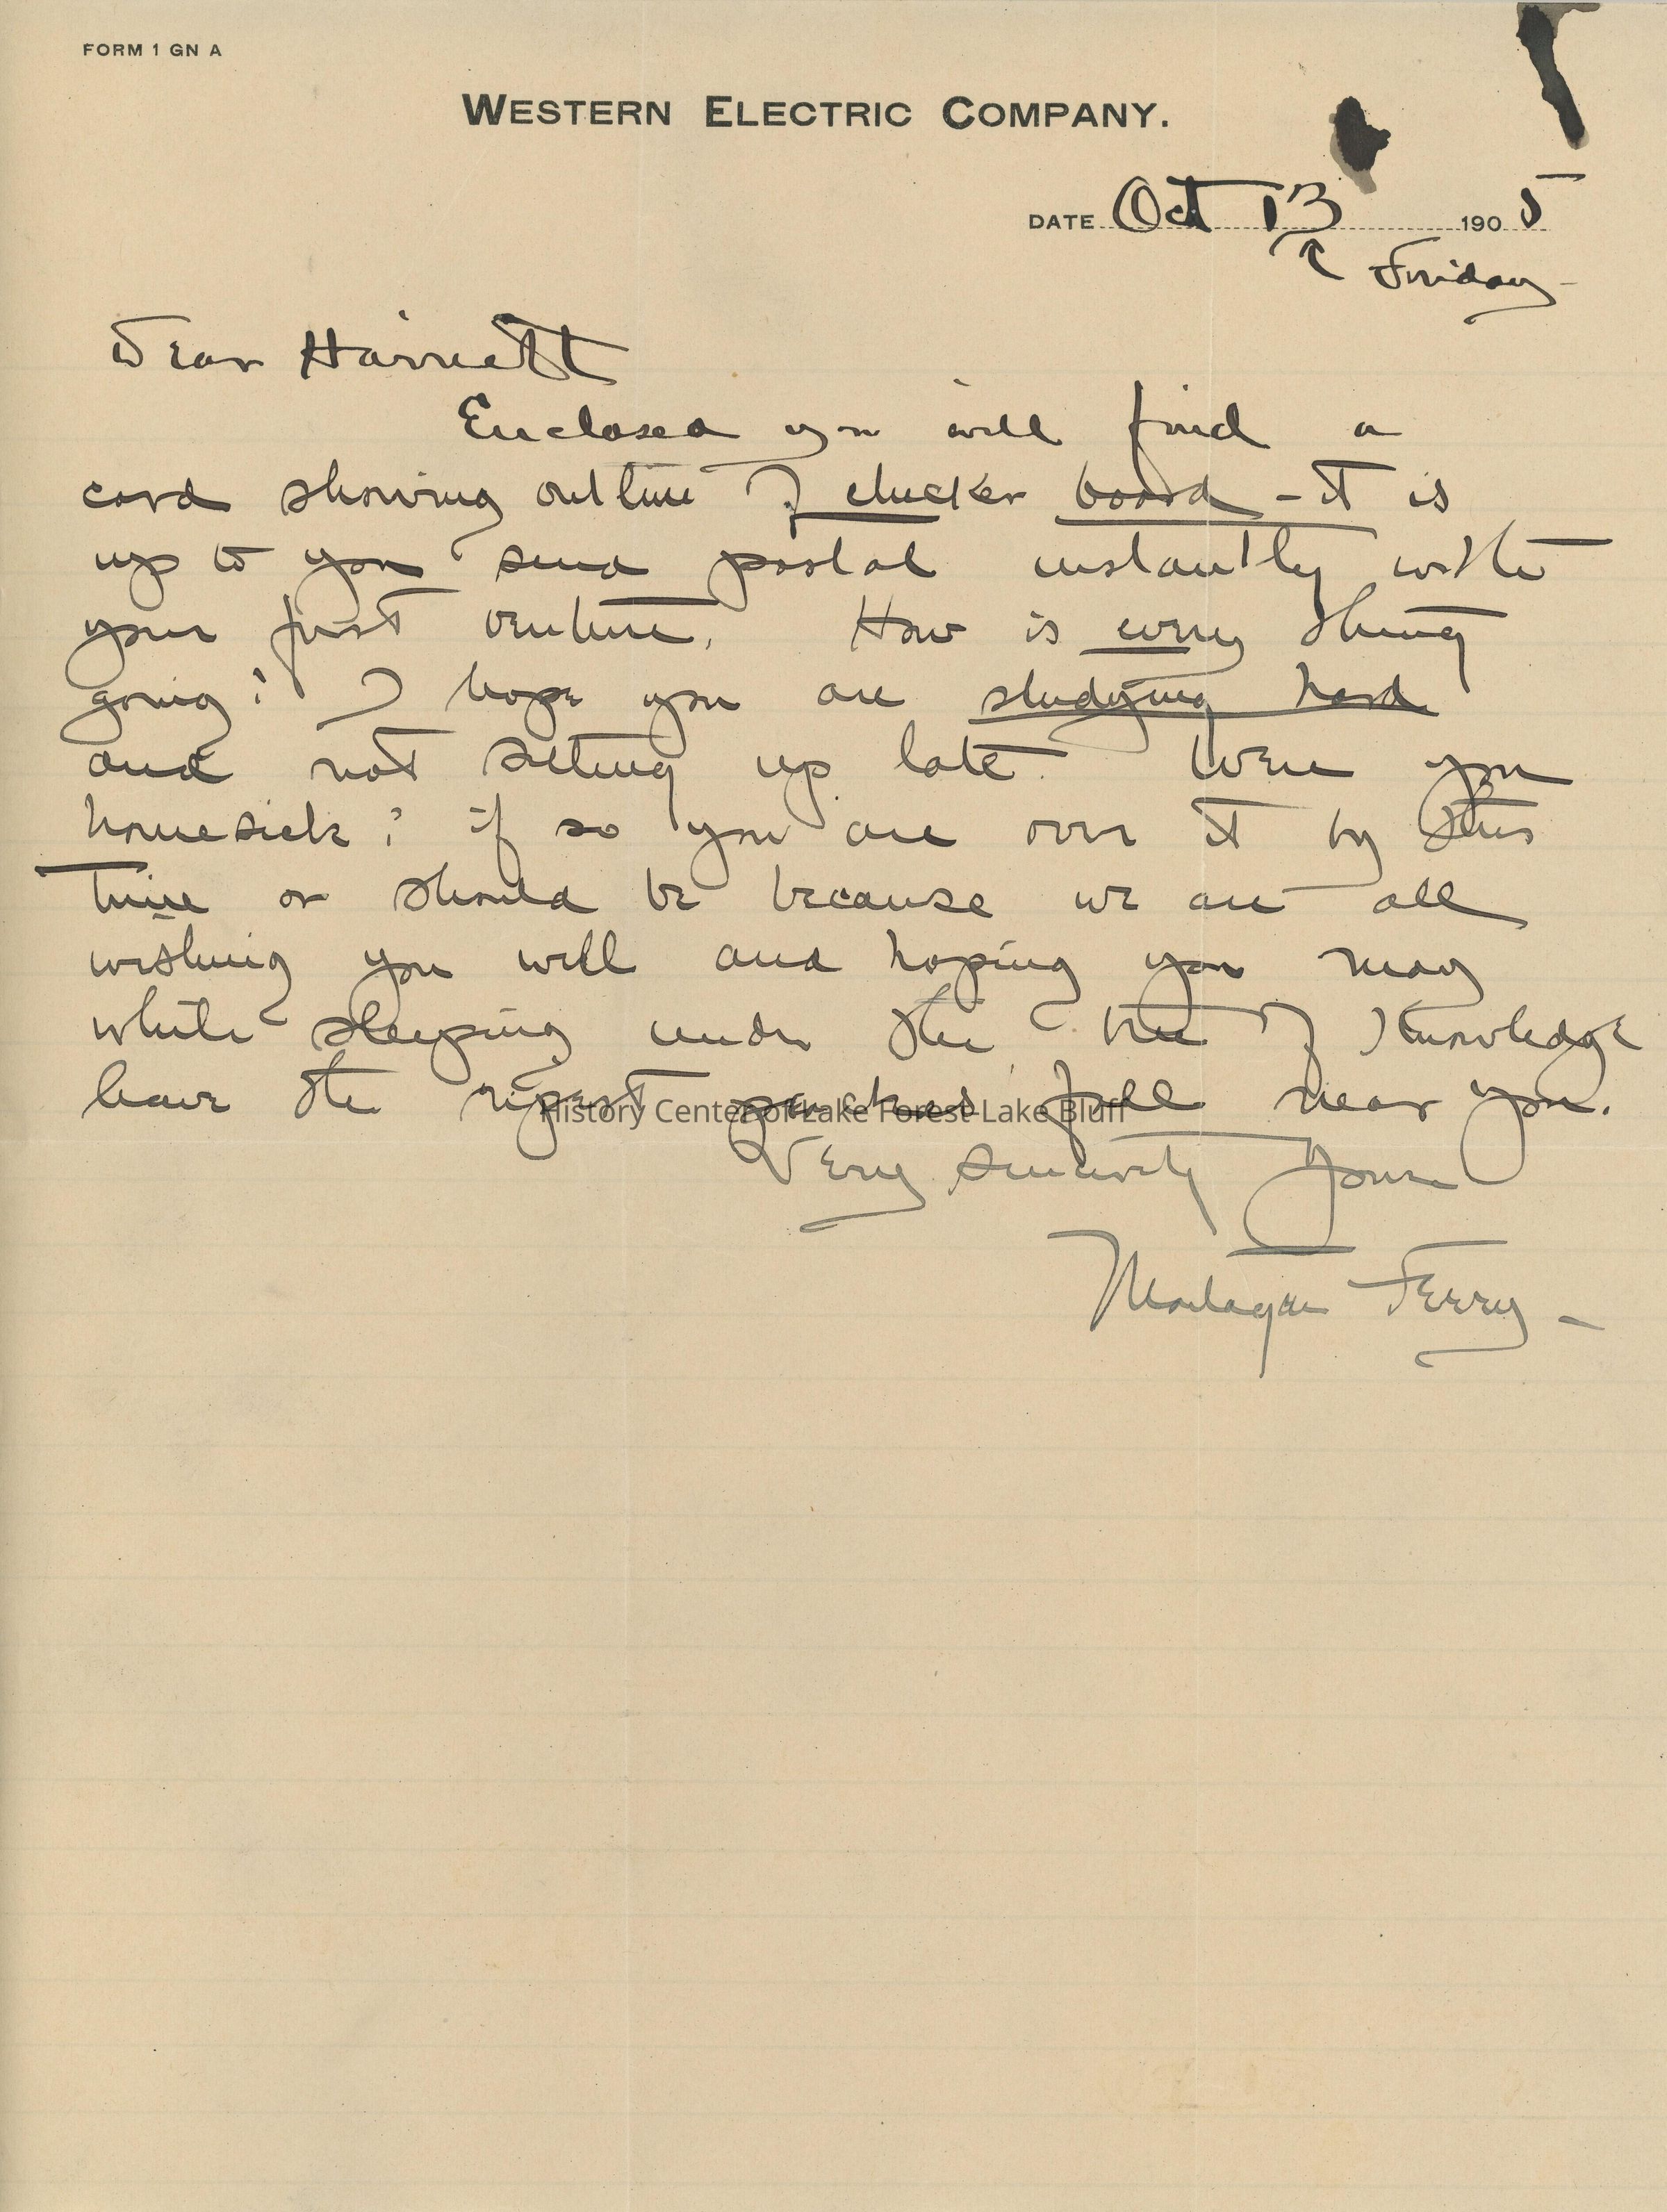 FORM 1 GN A
WESTERN ELECTRIC COMPANY.
DATE Oct 13 1905
Friday-
Dear Harriett
Enclosed you will find a
card showing outline of checker board - it is
up to you send postal instantly with
your first venture. How is every thing
going? I hope you are studying hard
and not sitting up late. Were you
homesick? if so you are over it by this
time or should be because we are all
wishing you well and hoping you may
while sleeping under the tree of Knowledge
have the ripest peaches fall near you.
History Center of Lake Forest-Lake Bluff
Very sincerely yours
Montague Ferry -